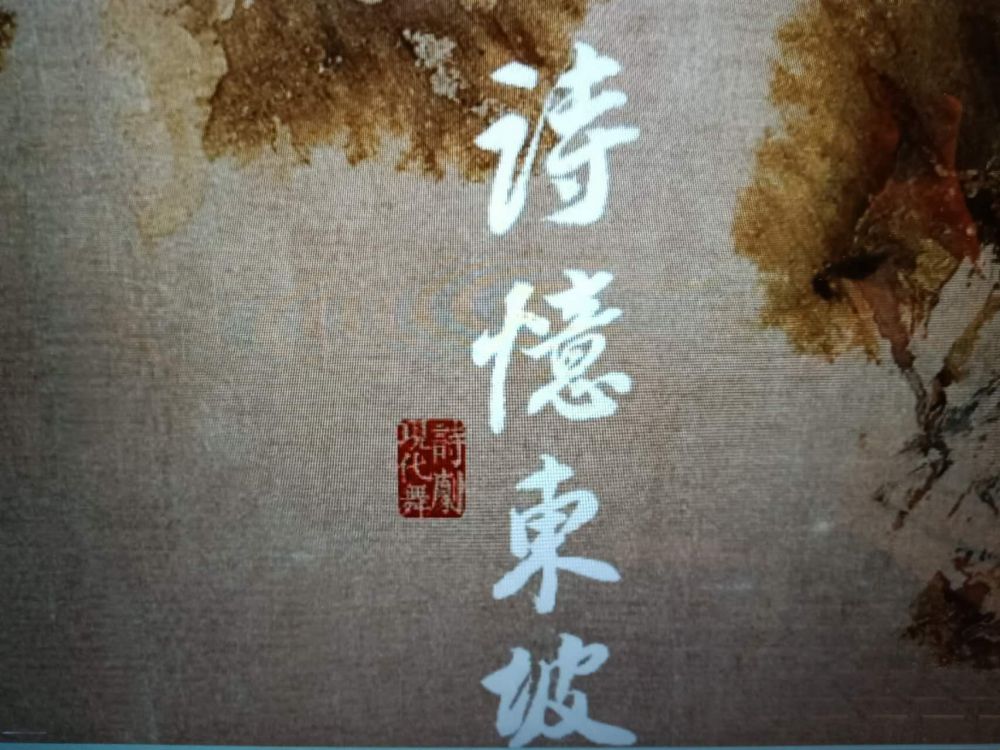 詩憶東坡
現代舞
詩劇